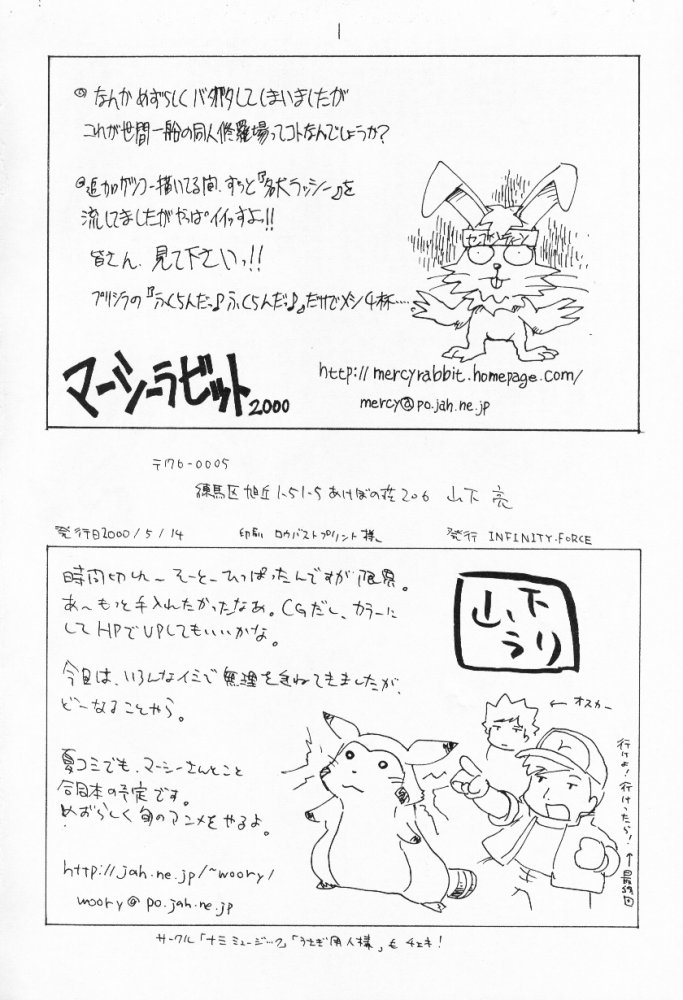 1
① なんかめずらしくバタバタしてしまいましたが
これが世間一般の同人修羅場ってコトなんでしょうか?
②追加ゲンコー描いてる間、ずっと『名犬ラッシー』を
流してましたがやっぱイイっすよっ!!
皆さん、見て下さいっ!!
プリシラの『ふくらんだっ♪ふくらんだっ♪』だけでメシ4杯……
セブンティーン
マーシーラビット2000
http://mercyrabbit.homepage.com/
mercy@po.jah.ne.jp
〒176-0005
練馬区旭丘1-51-5あけぼの荘206 山下 亮
発行日2000/5/14 印刷 ロウバストプリント様 発行 INFINITY-FORCE
時間切れ〜そーとーひっぱったんですが限界。
あ〜もっと手入れたかったなあ。CGだし、カラーに
してHPでUPしてもいいかな。
山下
うり
今回は、いろんなイミで無理を重ねてきましたが、
どーなることやら。
←オスカー
行けよ!行けったら!
↑最終回
夏コミでも、マーシーさんとこと
合同本の予定です。
めずらしく旬のアニメをやるよ。
http://jah.ne.jp/~woory/
woory@po.jah.ne.jp
サークル「ナミミュージック」「うさぎ同人様」も